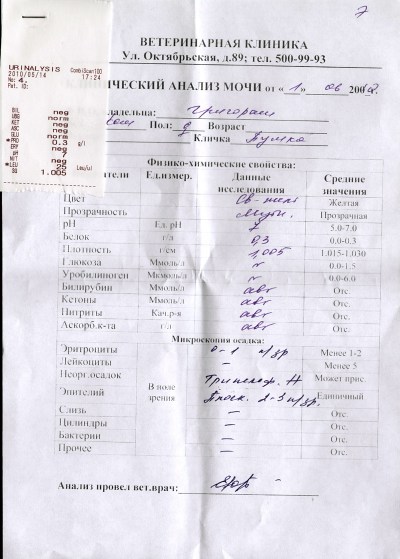 7
URINALYSIS CombiScan100
2010/05/14 17:24
No: 4.
Pat. ID:
BIL neg
UBG norm
KET neg
ASC neg
GLU norm
PRO 0.3 g/l
ERY neg
pH 7
NIT neg
LEU 25 Leu/ul
SG 1.005
ВЕТЕРИНАРНАЯ КЛИНИКА
Ул. Октябрьская, д.89; тел. 500-99-93
ИЧЕСКИЙ АНАЛИЗ МОЧИ от « 1 » 06 200
адельца: Григорян
Пол: Возраст
Кличка Пушка
Физико-химические свойства:
тели Ед.измер. Данные исследования Средние значения
Цвет Св-желт Желтая
Прозрачность Мутн. Прозрачная
pH Ед. pH 7 5.0-7.0
Белок г/л 0,3 0.0-0.3
Плотность г/см 1,005 1.015-1.030
Глюкоза Ммоль/г 0.0-1.5
Уробилиноген Мкмоль/г 0.0-6.0
Билирубин Ммоль/г Отс.
Кетоны Ммоль/г Отс.
Нитриты Кач.р-я Отс.
Аскорб.к-та г/л Отс.
Микроскопия осадка:
Эритроциты 0-1 п/зр Менее 1-2
Лейкоциты – Менее 5
Неорг.осадок Трипельф. Может прис.
Эпителий В поле зрения Плоск. 2-3 п/зр. Единичный
Слизь – Отс.
Цилиндры – Отс.
Бактерии – Отс.
Прочее – Отс.
Анализ провел вет.врач: